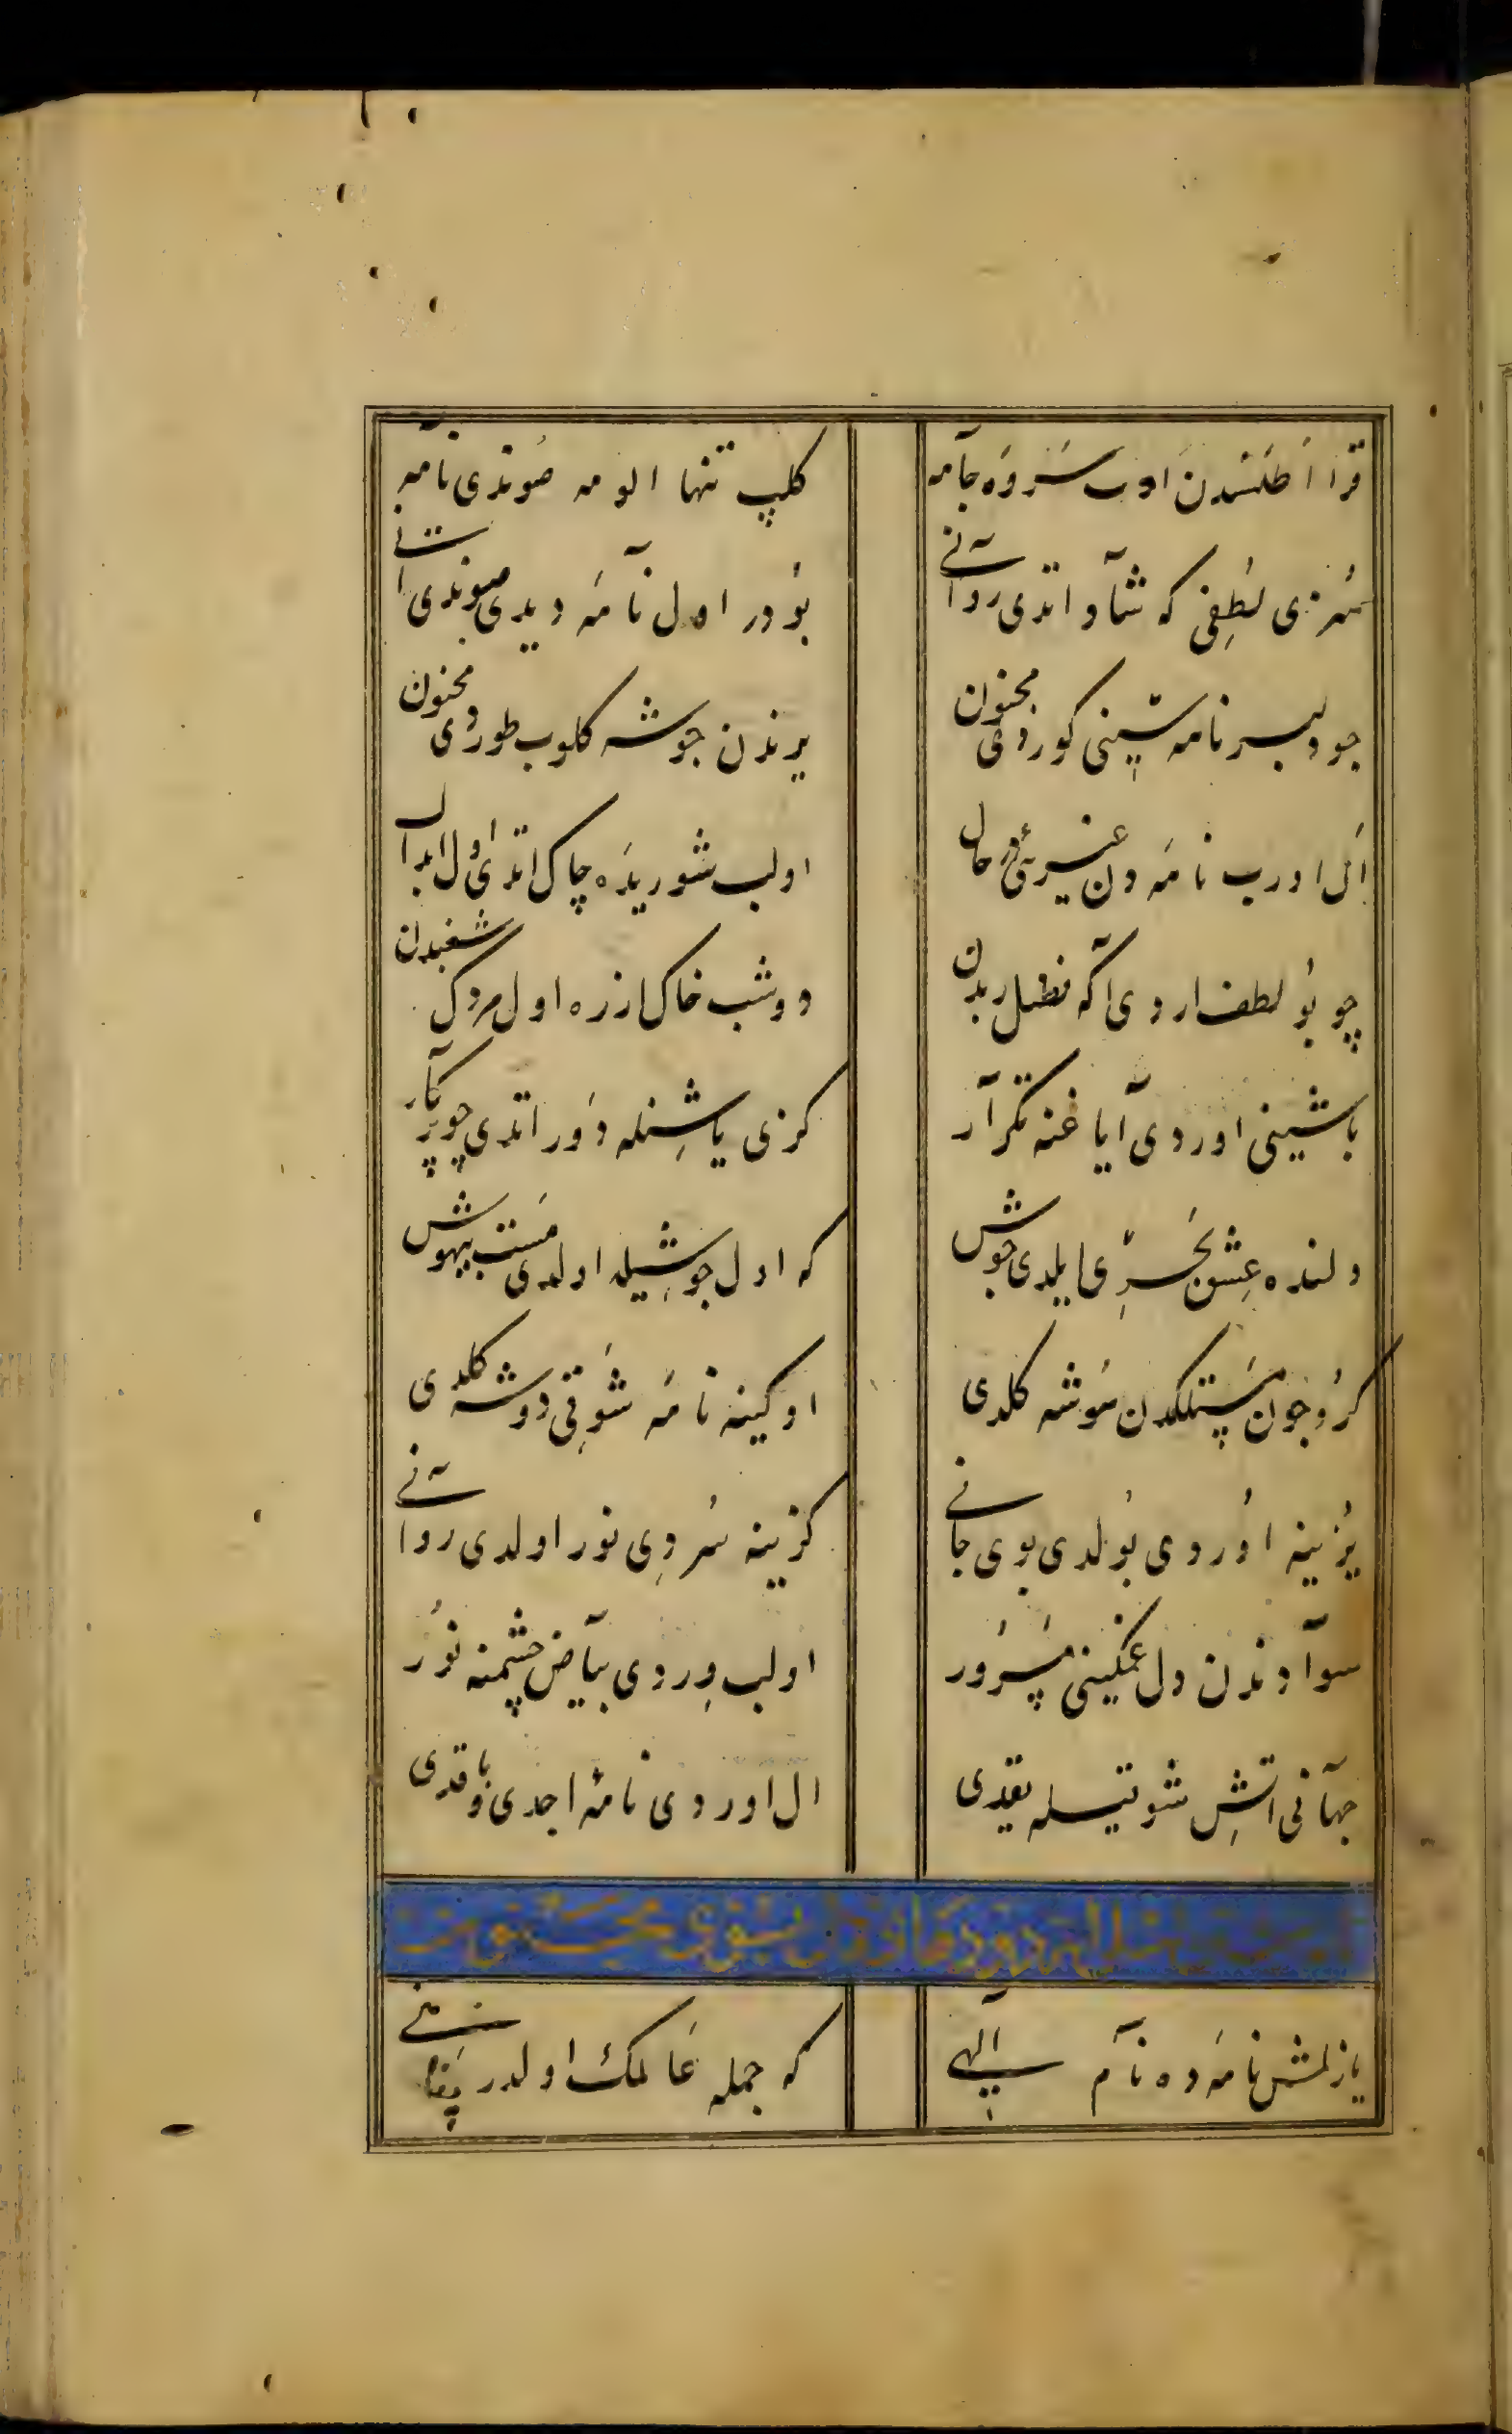 قرا اَطلسدن اول سَروَه جامه كلپ تنها الومه صُوندی نامه
سُزی لُطفِی كه شاد اتدی روانی بُودر اول نامه دیدی صوندی انی
چو دلبر نامه سِینی كوردی مجنون یرندن جوشه كلوب طوردی مجنون
اَل اورب نامه دن غیری در حال اولب شوریده چاك اتدی اول ابدال
چو بُو لطف اردی اكه فضل ربدن دوشب خاك ازره اول مردك شغبدن
باشینی اوردی آیاغنه تكرار كزی یاشِنله دَور اتدی چو پركار
دلنده عِشق بَحرِی ایلدی جوش كه اول جوشِیله اولدی مَست بیهوش
كرُو چون مَستلكدن هُوشه كلدی اوكینه نامَه شَوقِی دوشه كلدی
یُزینه اُوردی بُولدی بوی جانی كزینه سُردِی نور اولدی روانی
سوادندن دل غمكینی مَسرُور اولب وِردی بیاض چشمنه نُور
جهانی اتشِ شوقیله یقدی ال اوردی نامۀ اجدی و باقدی
لیلی سوی مجنون
یازلمش نامَه ده نام الهی كه جمله عَالمك اولدر پناهی